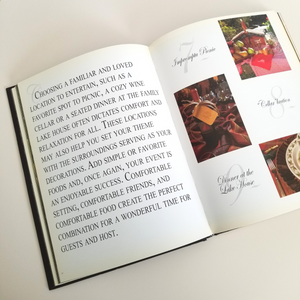 CHOOSING A FAMILIAR AND LOVED
LOCATION TO ENTERTAIN, SUCH AS A
FAVORITE SPOT TO PICNIC, A COZY WINE
CELLAR OR A SEATED DINNER AT THE FAMILY
LAKE HOUSE OFTEN DICTATES COMFORT AND
RELAXATION FOR ALL. THESE LOCATIONS
MAY ALSO HELP YOU SET YOUR THEME
WITH THE SURROUNDINGS SERVING AS YOUR
DECORATIONS. ADD SIMPLE OR FAVORITE
FOODS AND, ONCE AGAIN, YOUR EVENT IS
AN ENJOYABLE SUCCESS. COMFORTABLE
SETTING, COMFORTABLE FRIENDS, AND
COMFORTABLE FOOD CREATE THE PERFECT
COMBINATION FOR A WONDERFUL TIME FOR
GUESTS AND HOST.
7
Impromptu Picnic
8
Cellar
9
Dinner at the
Lake House